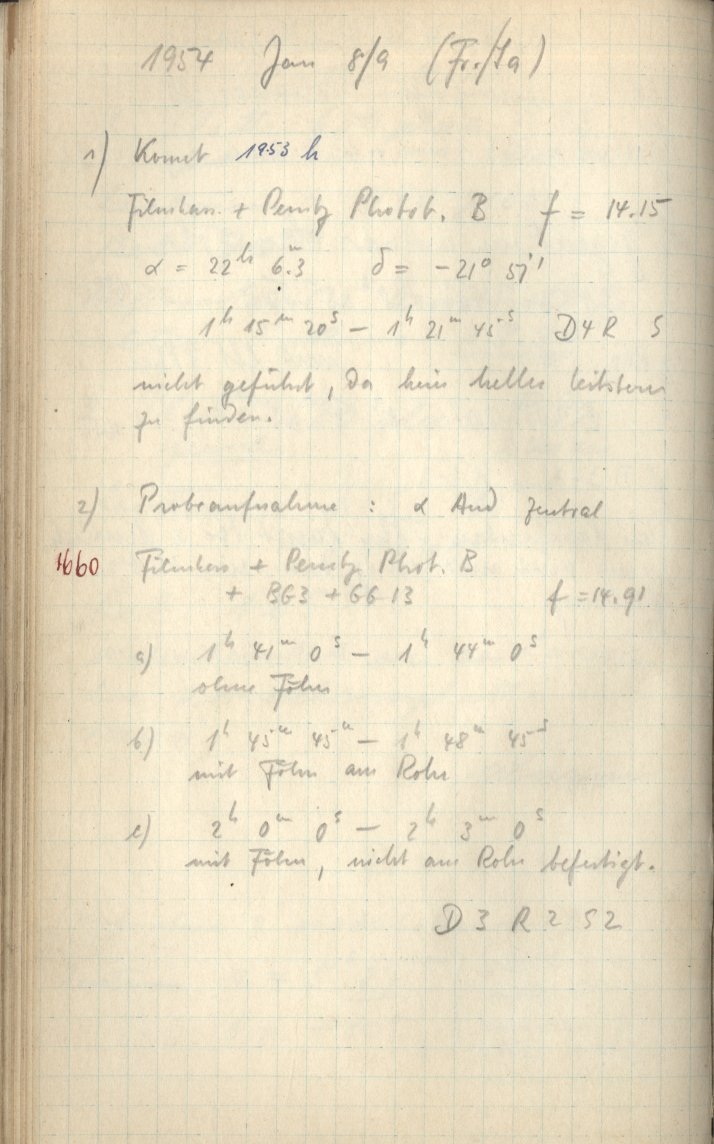 1954 Jan 8/9 (Fr./Sa)
1) Komet 1953 h
Filmkass. + Perutz Photot. B f = 14.15
α = 22h 6.m3 δ = -21° 57'
1h 15m 20s – 1h 21m 45s D4 R S
nicht geführt, da kein heller Leitstern
zu finden.
2) Probeaufnahme : α And zentral
1660 Filmkass + Perutz Phot. B
+ BG3 + GG 13 f = 14.91
a) 1h 41m 0s – 1h 44m 0s
ohne Föhn
b) 1h 45m 45s – 1h 48m 45s
mit Föhn am Rohr
c) 2h 0m 0s – 2h 3m 0s
mit Föhn, nicht am Rohr befestigt.
D 3 R 2 S 2